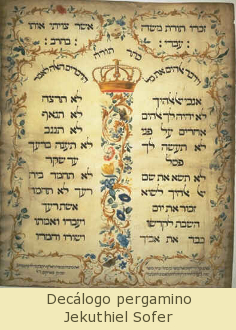 זכרו תורת משה
עבדי
אשר צויתי אותו
בחרב
כתר תורה
אנכי יי אלהיך
לא יהיה לך אלהים
אחרים על פני
לא תעשה לך
פסל
לא תשא את שם
אלהיך לשוא
זכור את יום
השבת לקדשו
כבד את אביך
לא תרצח
לא תנאף
לא תגנב
לא תענה ברעך
עד שקר
לא תחמד בית
רעך לא תחמד
אשת רעך
ועבדו ואמתו
ושורו וחמרו
Decálogo pergamino
Jekuthiel Sofer